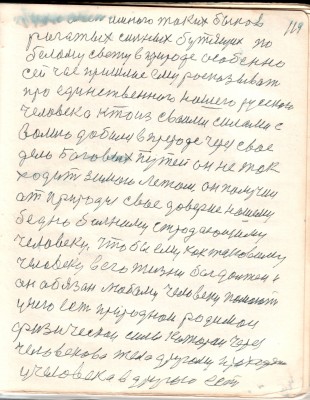 много таких быков 129
рагатых сильных бутящих по
белому свету в природе особенно
сей час пришлос ему росказыват
про единственного нашего руского
человека кто из своими силами с
волию добили в природе чериз свое
дело Боговых путей он не так
ходит зимою летом он получил
от природы свое доверие нашому
бедно болному страдающиму
человеку, что бы ему как таковому
человеку в его жизни
он обязан любому человеку помогат
у него ест природной родимой
физической силы катороя через
человекова тела другому
у человека в другого ест